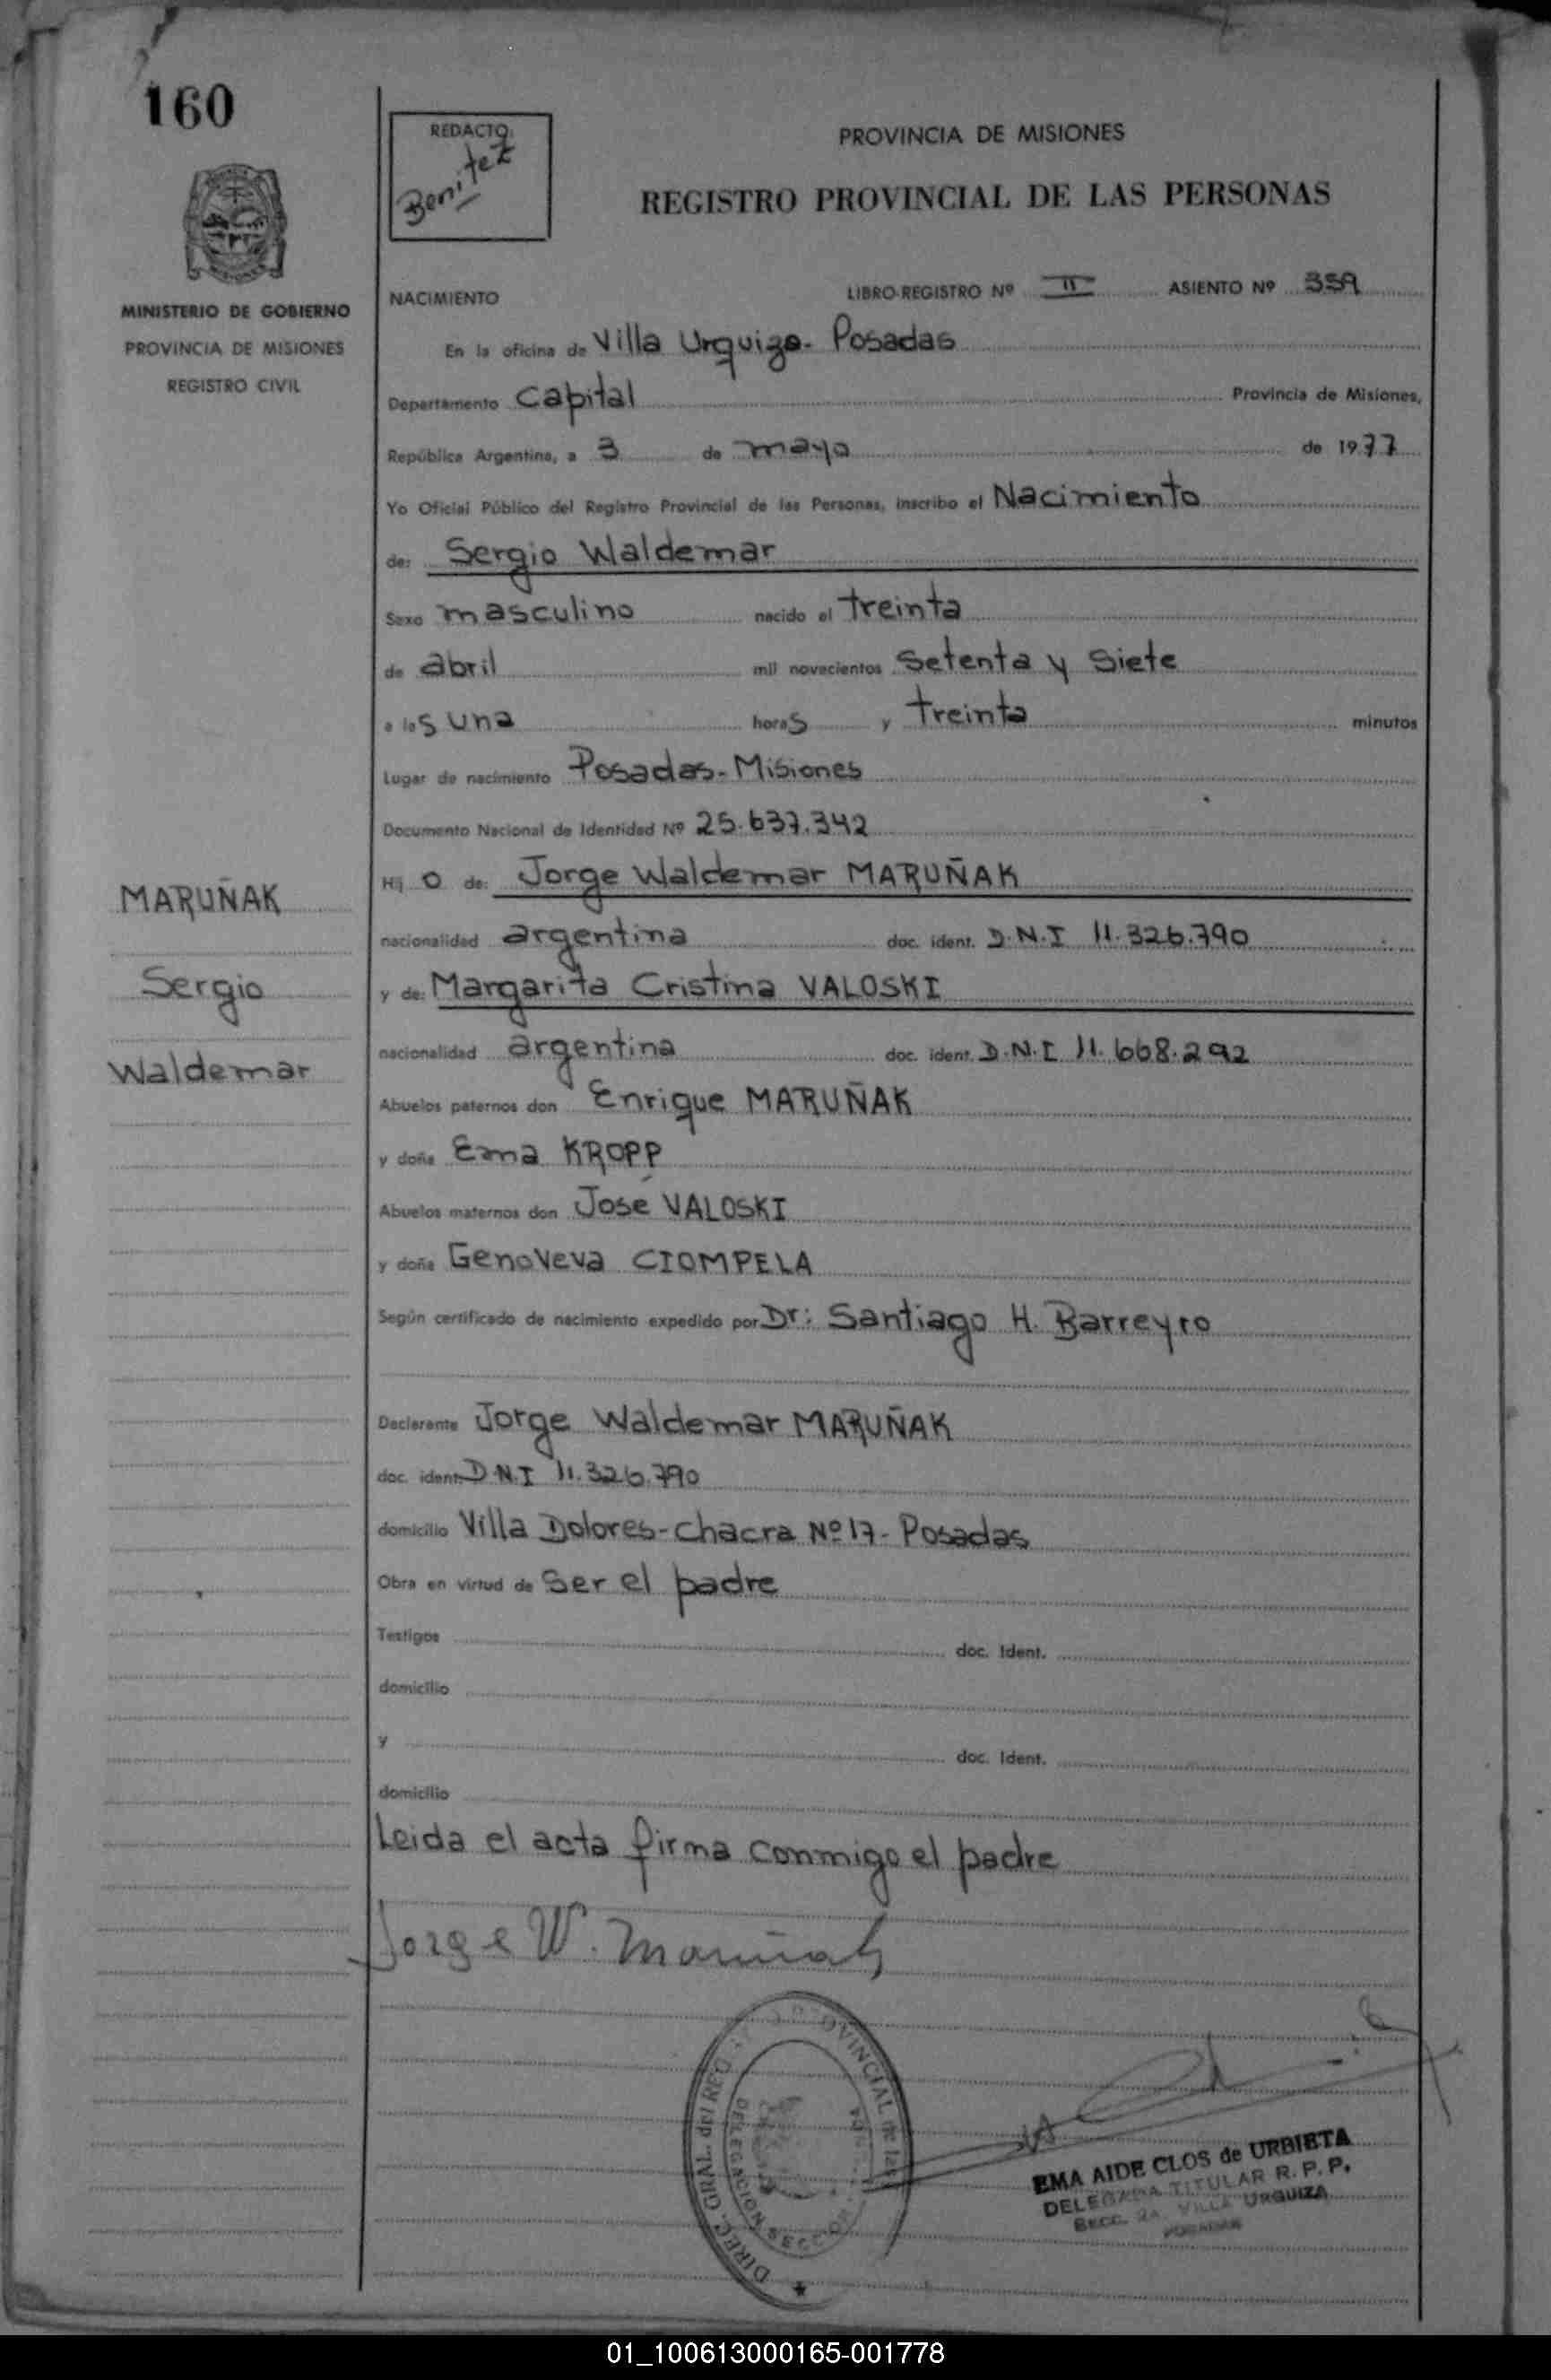 160
REDACTO:
Benitez
PROVINCIA DE MISIONES
REGISTRO PROVINCIAL DE LAS PERSONAS
MINISTERIO DE GOBIERNO
PROVINCIA DE MISIONES
REGISTRO CIVIL
NACIMIENTO LIBRO-REGISTRO Nº II ASIENTO Nº 359
En la oficina de Villa Urquiza- Posadas
Departamento Capital Provincia de Misiones,
República Argentina, a 3 de mayo de 1977
Yo Oficial Público del Registro Provincial de las Personas, inscribo el Nacimiento
de: Sergio Waldemar
Sexo masculino nacido el treinta
de abril mil novecientos Setenta y Siete
a las una horas y treinta minutos
Lugar de nacimiento Posadas-Misiones
Documento Nacional de Identidad Nº 25.637.342
Hijo de: Jorge Waldemar MARUÑAK
MARUÑAK
nacionalidad argentina doc. ident. D.N.I 11.326.790
Sergio
y de: Margarita Cristina VALOSKI
nacionalidad argentina doc. ident. D.N.I 11.668.292
Waldemar
Abuelos paternos don Enrique MARUÑAK
y doña Ema KROPP
Abuelos maternos don José VALOSKI
y doña Genoveva CIOMPELA
Según certificado de nacimiento expedido por Dr: Santiago H. Barreyro
Declarante Jorge Waldemar MARUÑAK
doc. ident. D.N.I 11.326.790
domicilio Villa Dolores-Chacra Nº 17- Posadas
Obra en virtud de Ser el padre
Testigos doc. Ident.
domicilio
y doc. Ident.
domicilio
Leida el acta firma conmigo el padre
Jorge W. Maruñak
DIREC. GRAL. del REG. PROVINCIAL de las
DELEGACION SECCION
EMA AIDE CLOS de URBIETA
DELEGADA TITULAR R. P. P.
Secc. 2a. VILLA URQUIZA
POSADAS
01_100613000165-001778